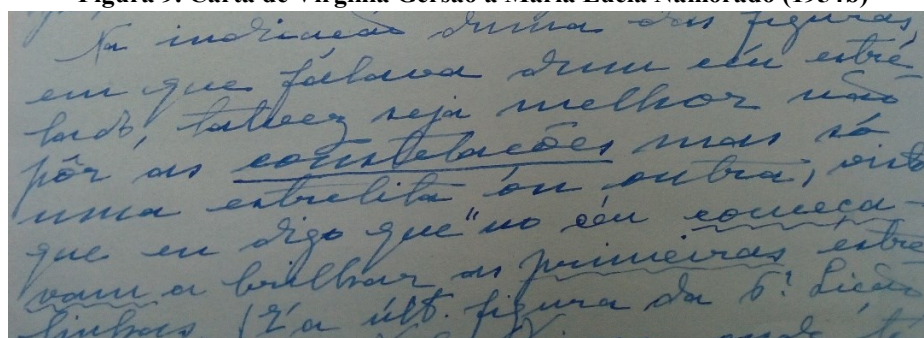 Figura 9. Carta de Virgínia Gersão a Maria Lúcia Namorado (1954b)
Na indicação duma das figuras,
em que falava dum céu estrê-
lado, talvez seja melhor não
pôr as constelações mas só
uma estrelita ou outra, visto
que eu digo que "no céu começa-
vam a brilhar as primeiras estre
linhas (É a últ. figura da 6ª Lição